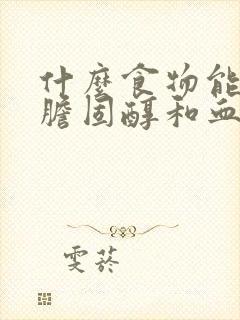 什麼食物能
膽固醇和血
雯菸